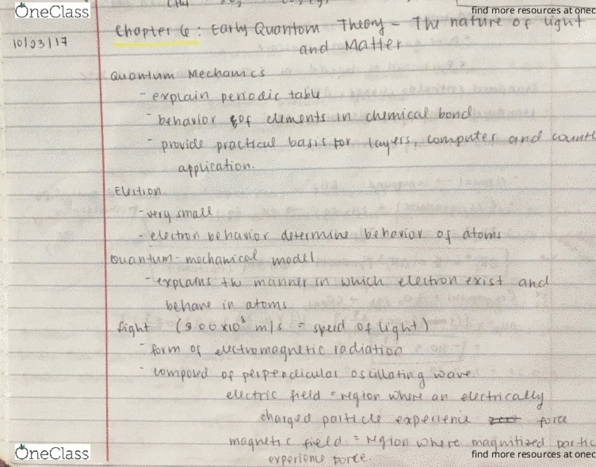 OneClass
find more resources at onec
10/23/17
Chapter 6: Early Quantom Theory - The nature of light
and Matter
Quantum Mechanics
- explain periodic table
- behavior of elements in chemical bond
- provide practical basis for layers, computer and countl
application.
Electron
- very small
- electron behavior determine behavior of atoms
Quantum-mechanical model
- explains the manner in which electron exist and
behave in atoms
light (3.00x10⁸ m/s = speed of light)
- form of electromagnetic radiation
- composed of perpendicular oscillating wave
electric field = region where an electrically
charged particle experience force
magnetic field = region where magnitized partic
experience force.
OneClass
find more resources at onec